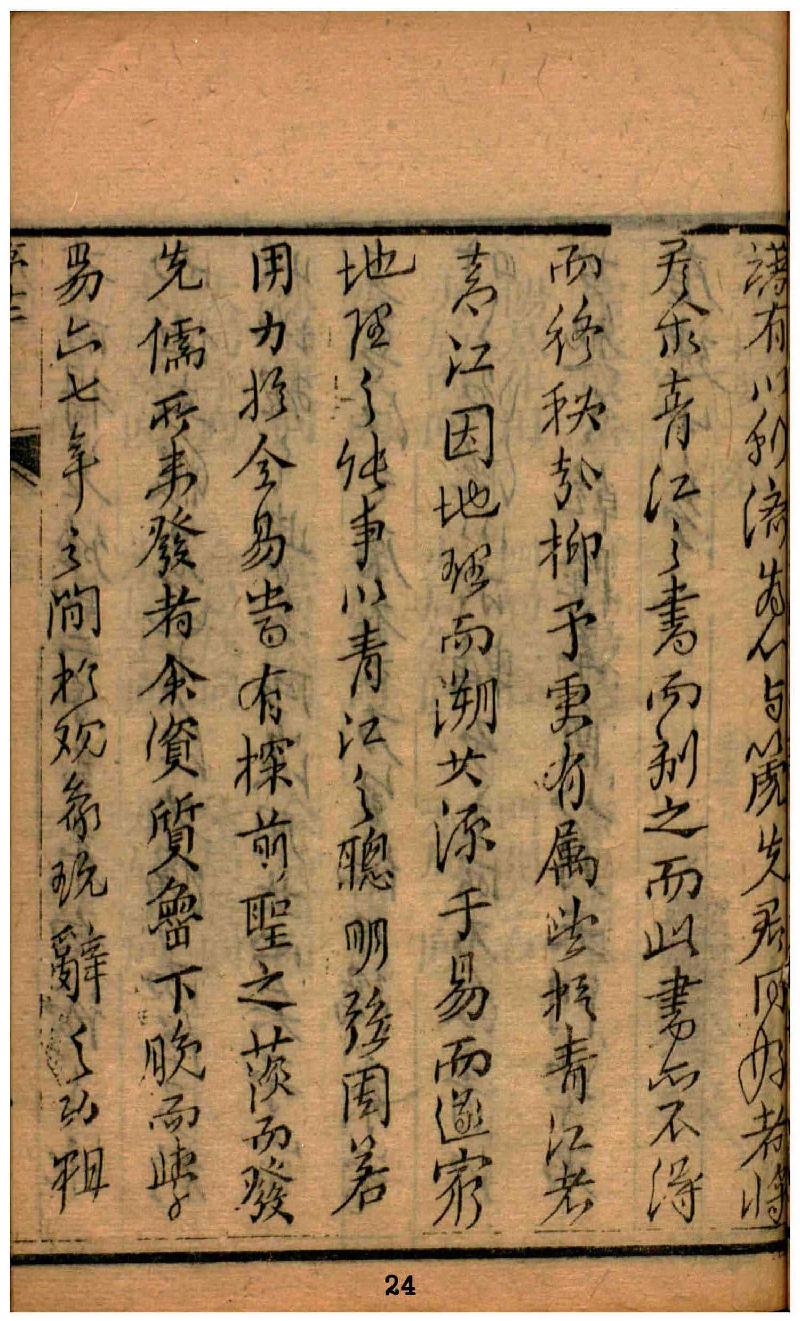 謀有以利濟為心与麓先君同好者將
尽求青江之書而刻之而此書亦不得
而終秘於柳予更有属焉柳青江者
青江因地理而溯其源于易而遂窮
地理之能事以青江之聰明強固若
用力於全易當有探前聖之蘊而發
先儒所未發者余資質魯下晚而學
易六七年之間於观象玩辭之功粗
24